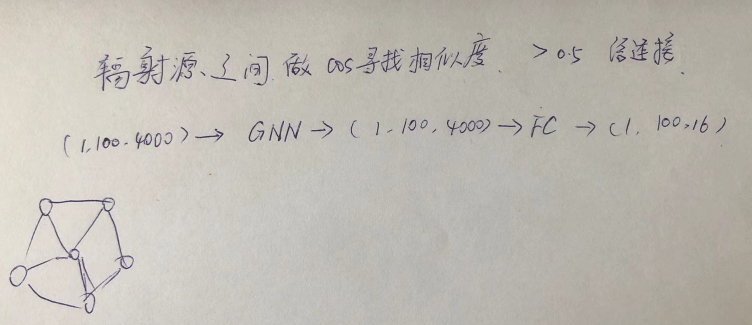 辐射源之间 做 cos 寻找相似度. >0.5 连接.
(1,100,4000) → GNN → (1,100,4000) → FC → (1,100,16)